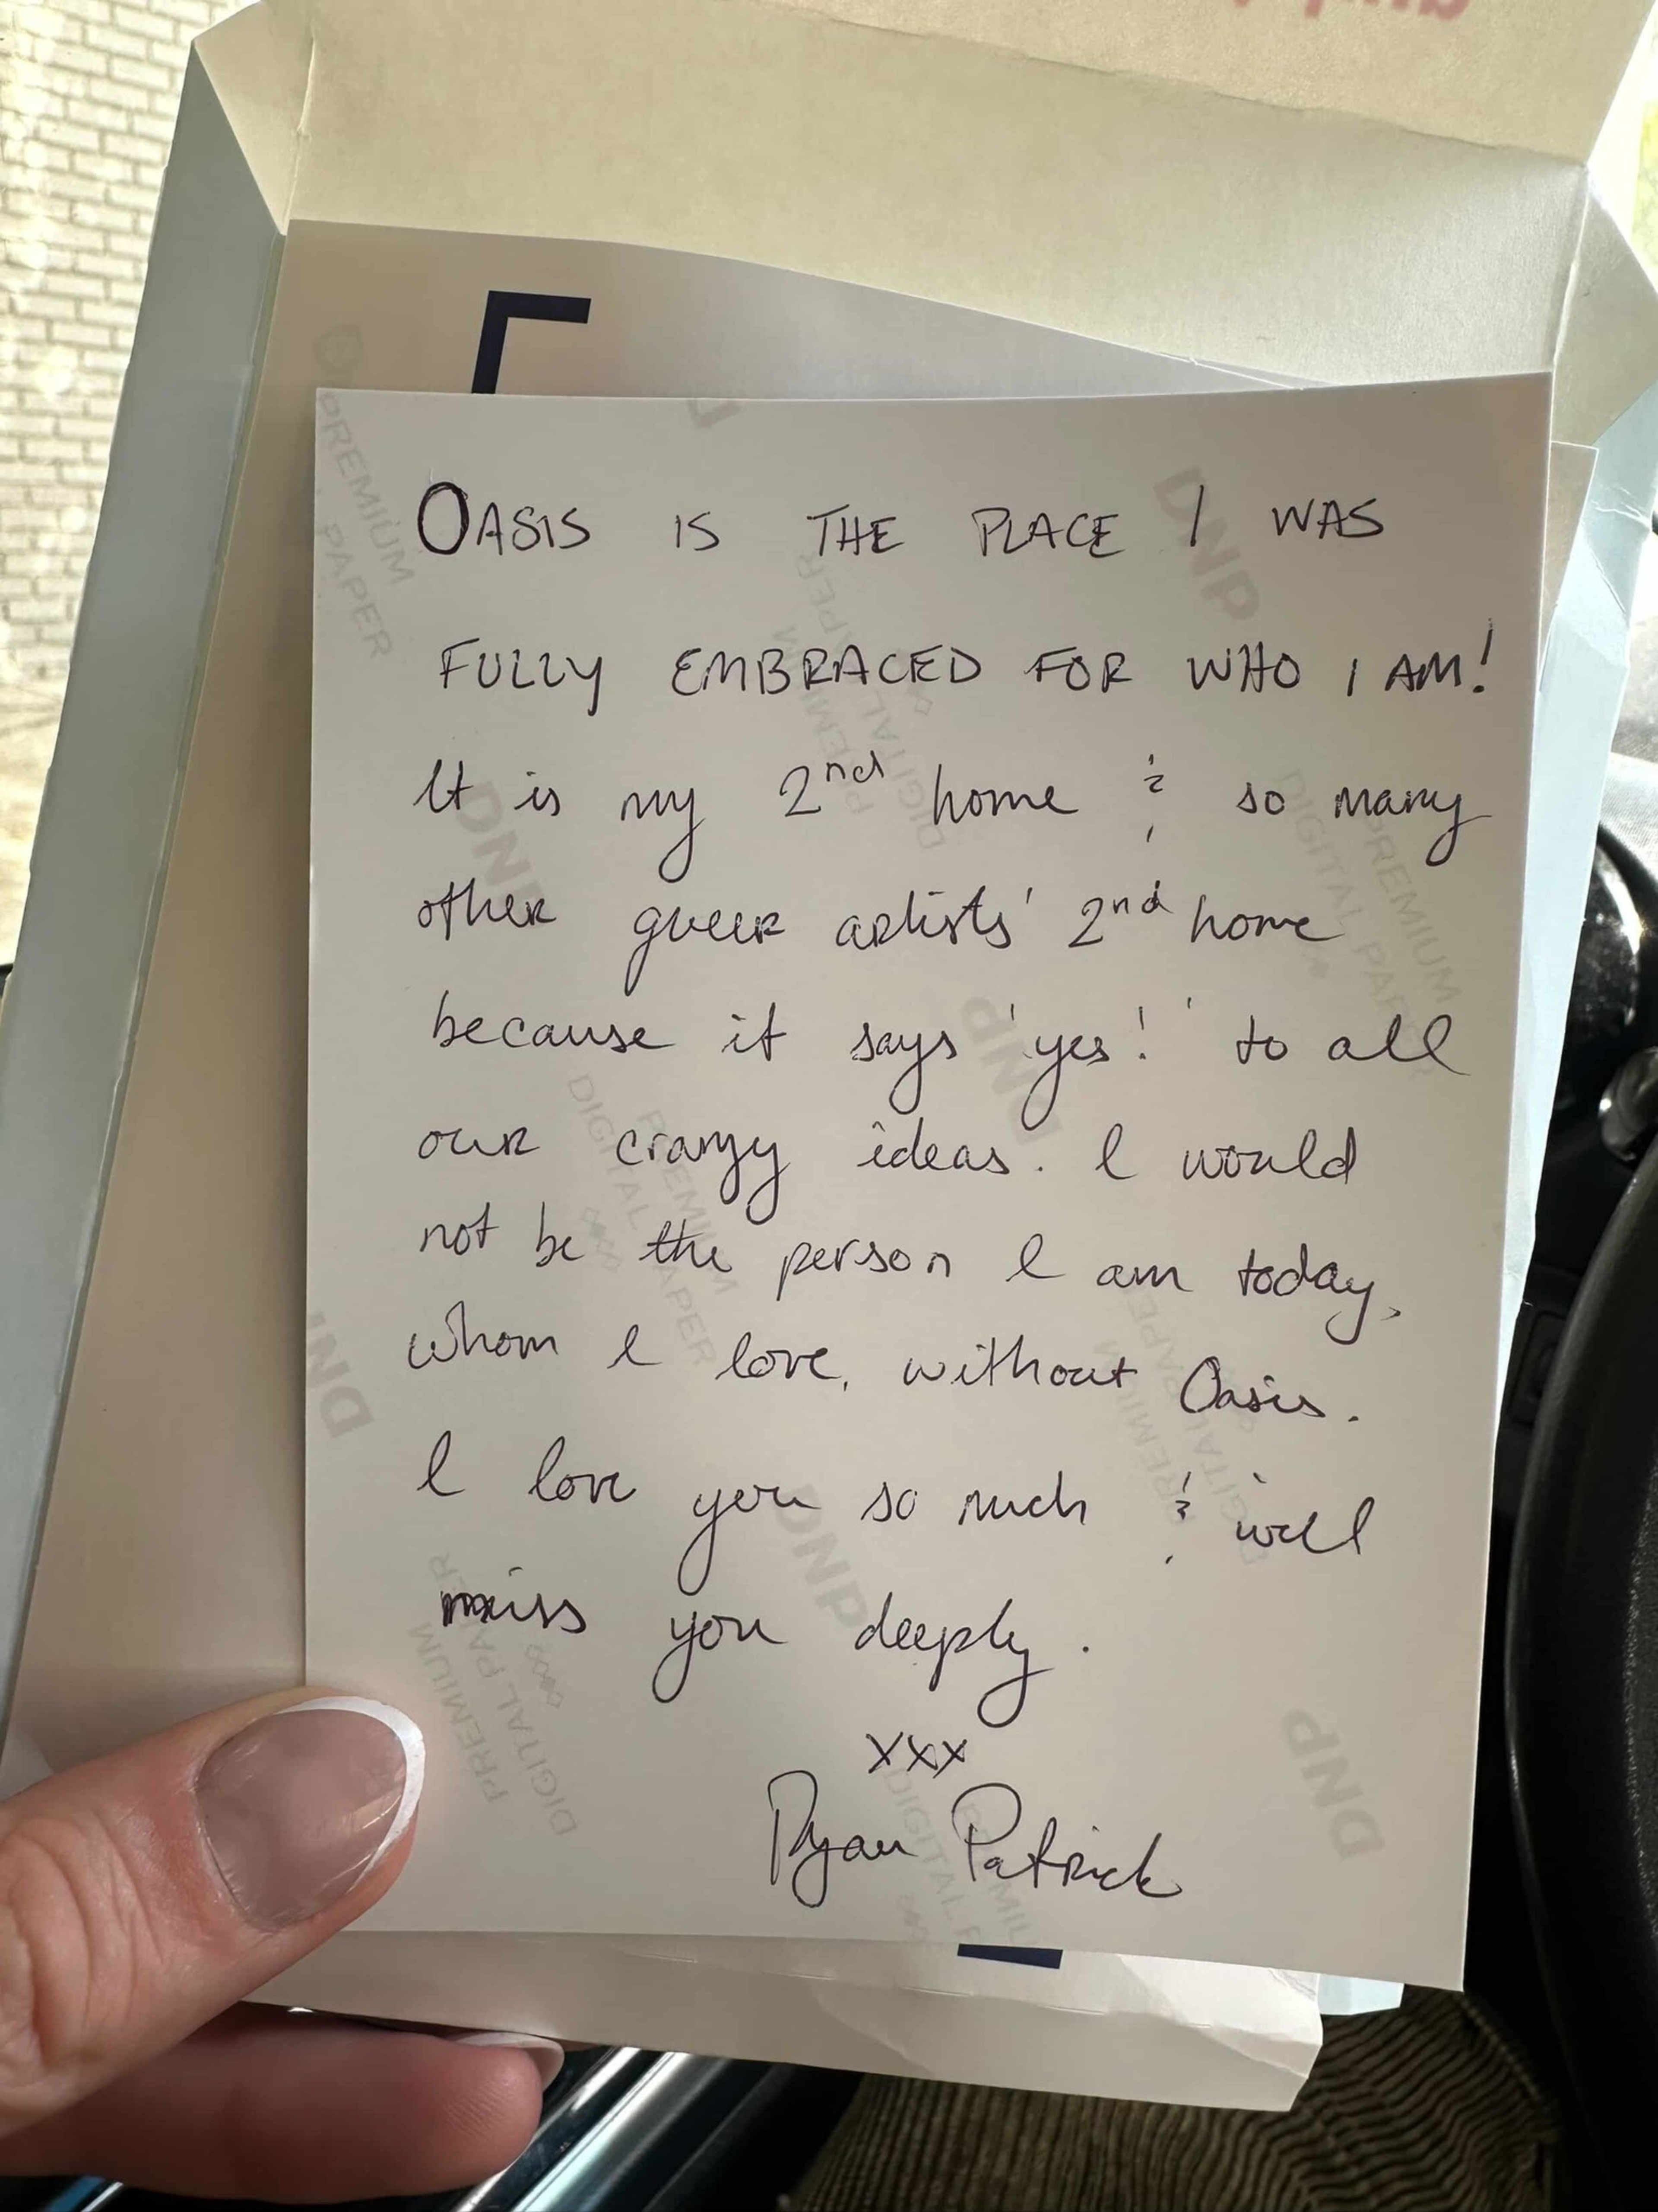 OASIS IS THE PLACE I WAS
FULLY EMBRACED FOR WHO I AM!
It is my 2nd home & so many
other queer artists' 2nd home
because it says 'yes!' to all
our crazy ideas. I would
not be the person I am today,
whom I love, without Oasis.
I love you so much & will
miss you deeply.
xxx
Ryan Patrick
DNP
PREMIUM
DIGITAL PAPER